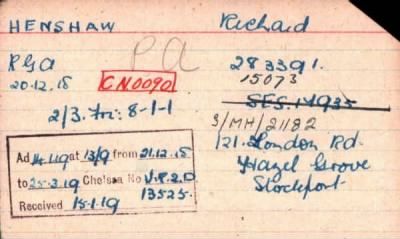 HENSHAW Richard
PA
RGA 283391.
15073
20.12.18 CN0090
2/3. Fri: 8-1-1 SFS.14935
3/MH/21182
121. London Rd.
Hazel Grove
Stockport
Ad 14.1.19 at 13/9 from 21.12.18
to 25-3.19 Chelsea No V.R.2.D
13525.
Received 15.1.19